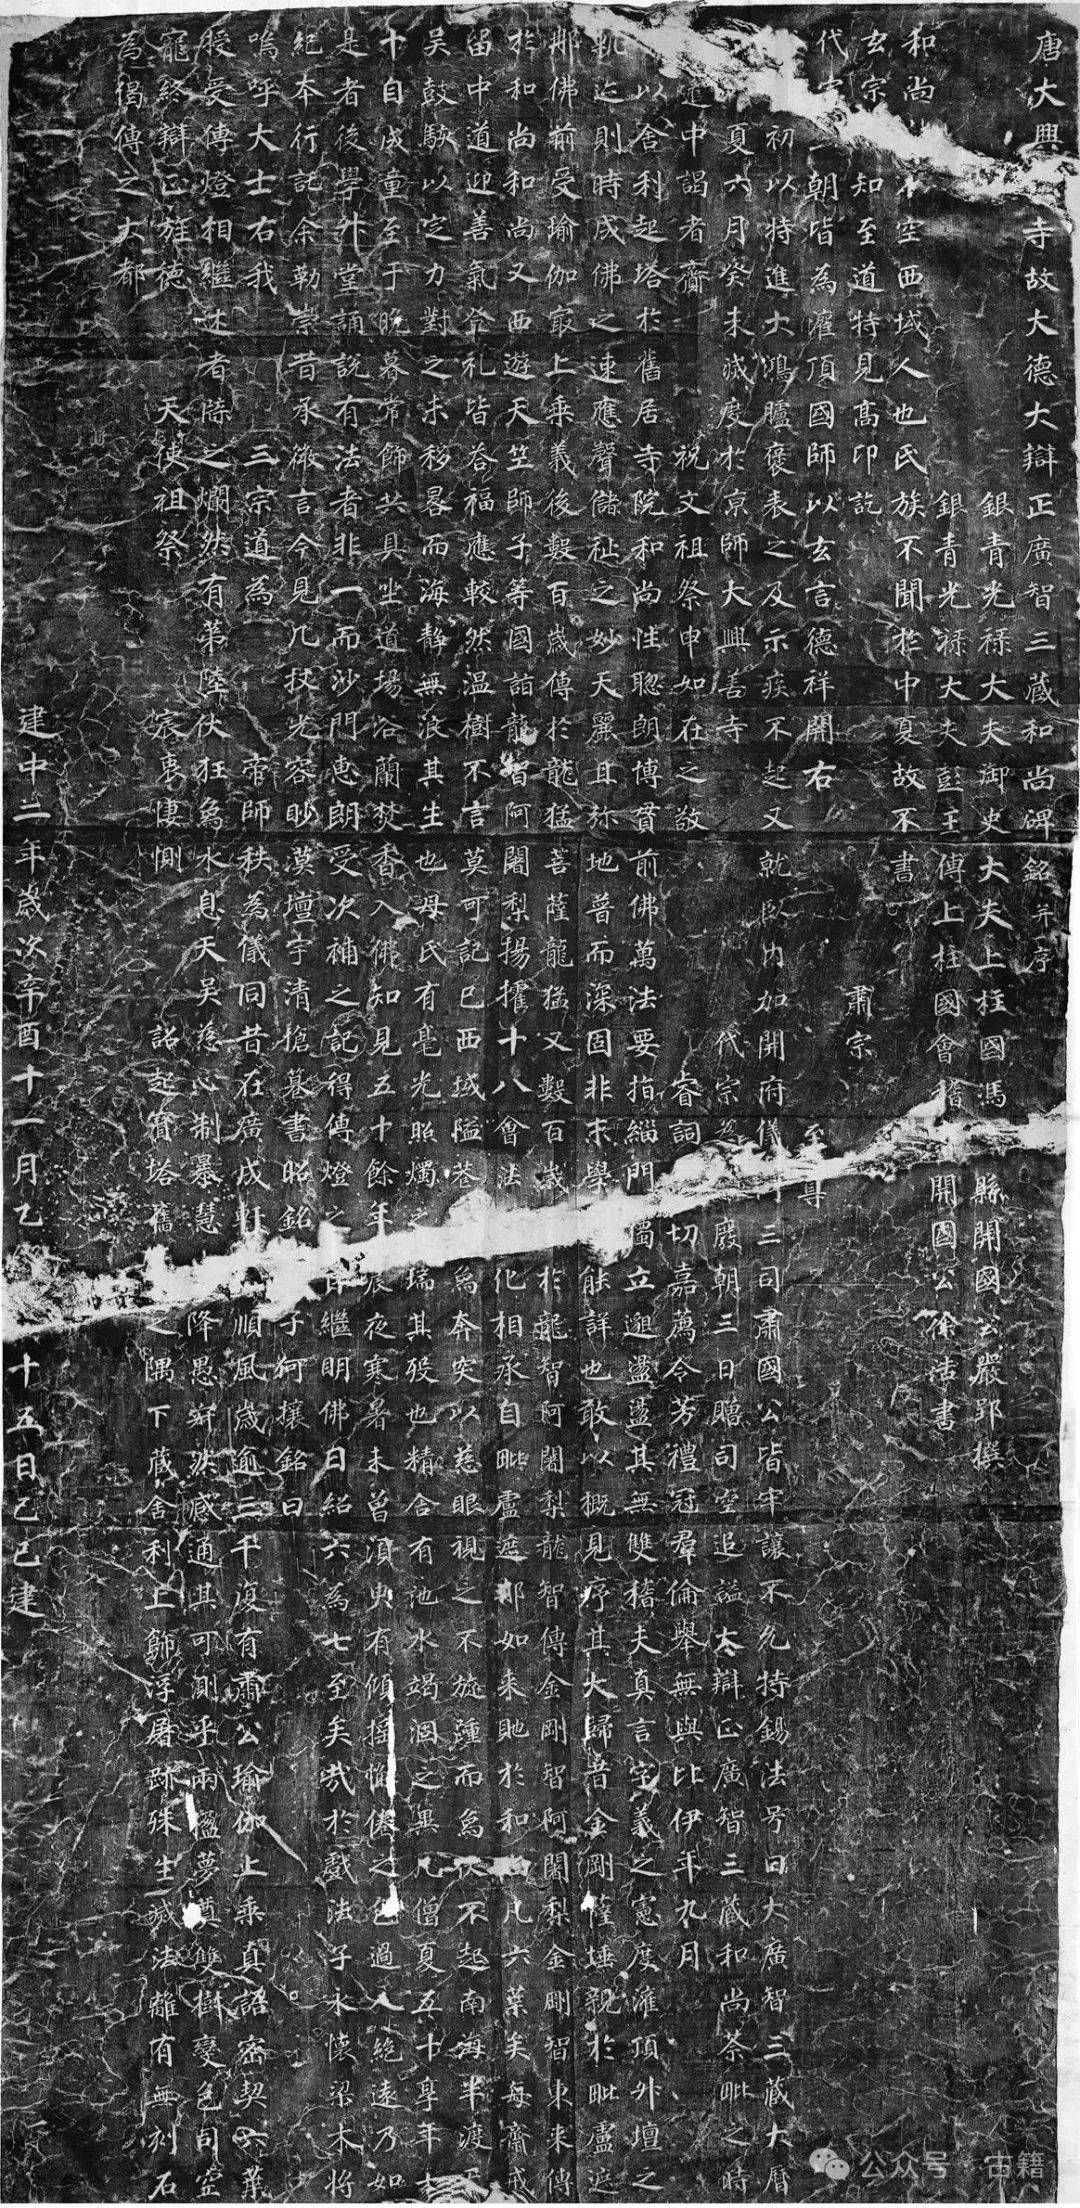 唐大興寺故大德大辯正廣智三藏和尚碑銘并序
銀青光祿大夫御史大夫上柱國馮縣開國公嚴郢撰
銀青光祿大夫彭王傅上柱國會稽開國公徐浩書
和尚不空西域人也氏族不聞於中夏故不書
玄宗知至道特見高卬訖肅宗
代宗朝皆為灌頂國師以玄言德祥開右至尊
初以特進大鴻臚褒表之及示疾不起又就臥內加開府儀三司肅國公皆牢讓不允特錫法号曰大廣智三藏大曆
夏六月癸未滅度於京師大興善寺代宗為廢朝三日贈司空追謚大辯正廣智三藏和尚荼毗之時
遣中謁者齎祝文祖祭申如在之敬睿詞切嘉薦令芳禮冠羣倫舉無與比伊年九月
以舍利起塔於舊居寺院和尚性聰朗博貫前佛萬法要指緇門獨立邈盪盪其無雙稽夫真言字義之憲度灌頂升壇之
軌迹則時成佛之速應聲儲祉之妙天麗且弥地普而深固非末學能詳也敢以概見序其大歸昔金剛薩埵親於毗盧遮
那佛前受瑜伽最上乘義後數百歲傳於龍猛菩薩龍猛又數百歲於龍智阿闍梨龍智傳金剛智阿闍梨金剛智東來傳
於和尚和尚又西遊天竺師子等國詣龍智阿闍梨揚攉十八會法化相承自毗盧遮那如來貤於和尚凡六葉矣每齋戒
留中道迎善氣登礼皆荅福應較然温樹不言莫可記已西域隘巷為奔突以慈眼視之不旋踵而為伏不起南海半渡天
吳鼓駭以定力對之未移晷而海靜無浪其生也母氏有毫光照燭之瑞其歿也精舍有池水竭涸之異凡僧夏五十享年七
十自成童至于晚暮常飾共具坐道場浴蘭焚香入佛知見五十餘年晨夜寒暑未曾湏臾有傾摇懈倦之色過人絶遠乃如
是者後學升堂誦說有法者非一而沙門惠朗受次補之記得傳燈之旨繼明佛日紹六為七至矣哉於戲法子永懷梁木將
紀本行託余勒崇昔承微言今見几杖光容眇漠壇宇清愴篹書昭銘子何讓銘曰
嗚呼大士右我三宗道為帝師秩為儀同昔在廣成軒順風歲逾三千復有肅公瑜伽上乘真詔密契六葉
授受傳燈相繼述者牒之爛然有第陸伏狂為水息天吳慈心制暴慧降愚寂然感通其可測乎兩楹夢奠雙樹變色司空
寵終辯正旌德天使祖祭宸衷悽惻詔起寶塔舊之隅下藏舍利上飾浮屠跡殊生滅法離有無刻石
為偈傳之大都
建中二年歲次辛酉十一月乙十五日己巳建
公众号 古籍